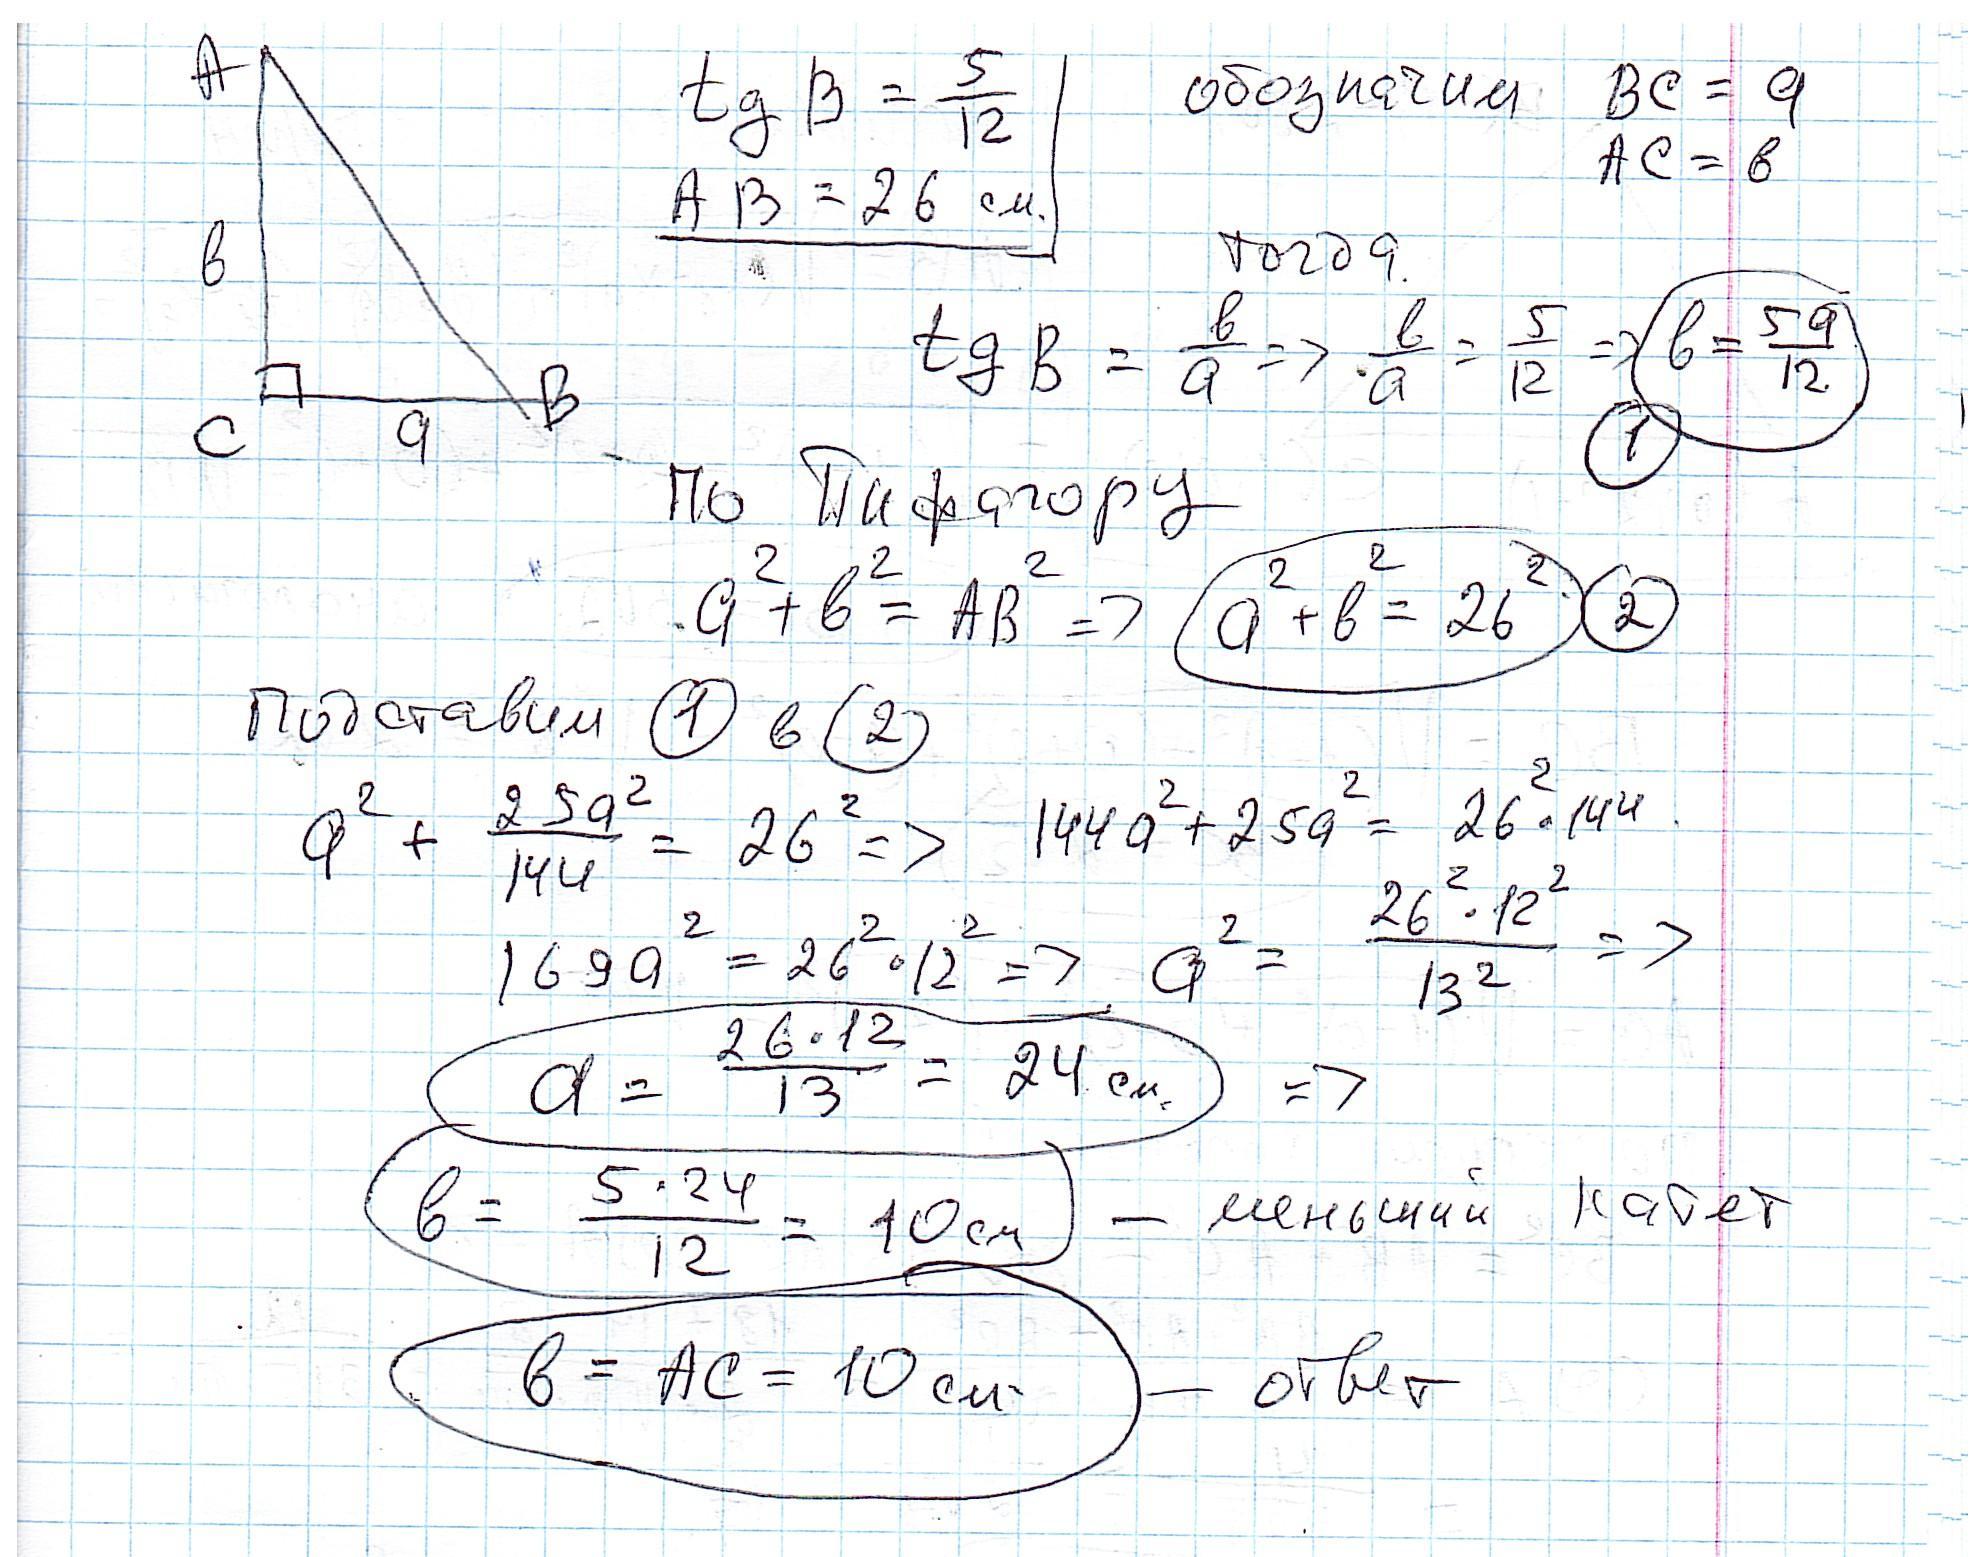 A
tg B = 5/12
обозначим BC = a
AB = 26 см.
AC = в
тогда.
в
tg B = в/a => в/a = 5/12 => в = 5a/12
1
C a B
По Пифагору
a² + в² = AB² => a² + в² = 26² 2
Подставим 1 в 2
a² + 25a²/144 = 26² => 144a² + 25a² = 26² · 144
169a² = 26² · 12² => a² = 26² · 12²/13² =>
a = 26 · 12/13 = 24 см. =>
в = 5 · 24/12 = 10 см – меньший катет
в = AC = 10 см – ответ